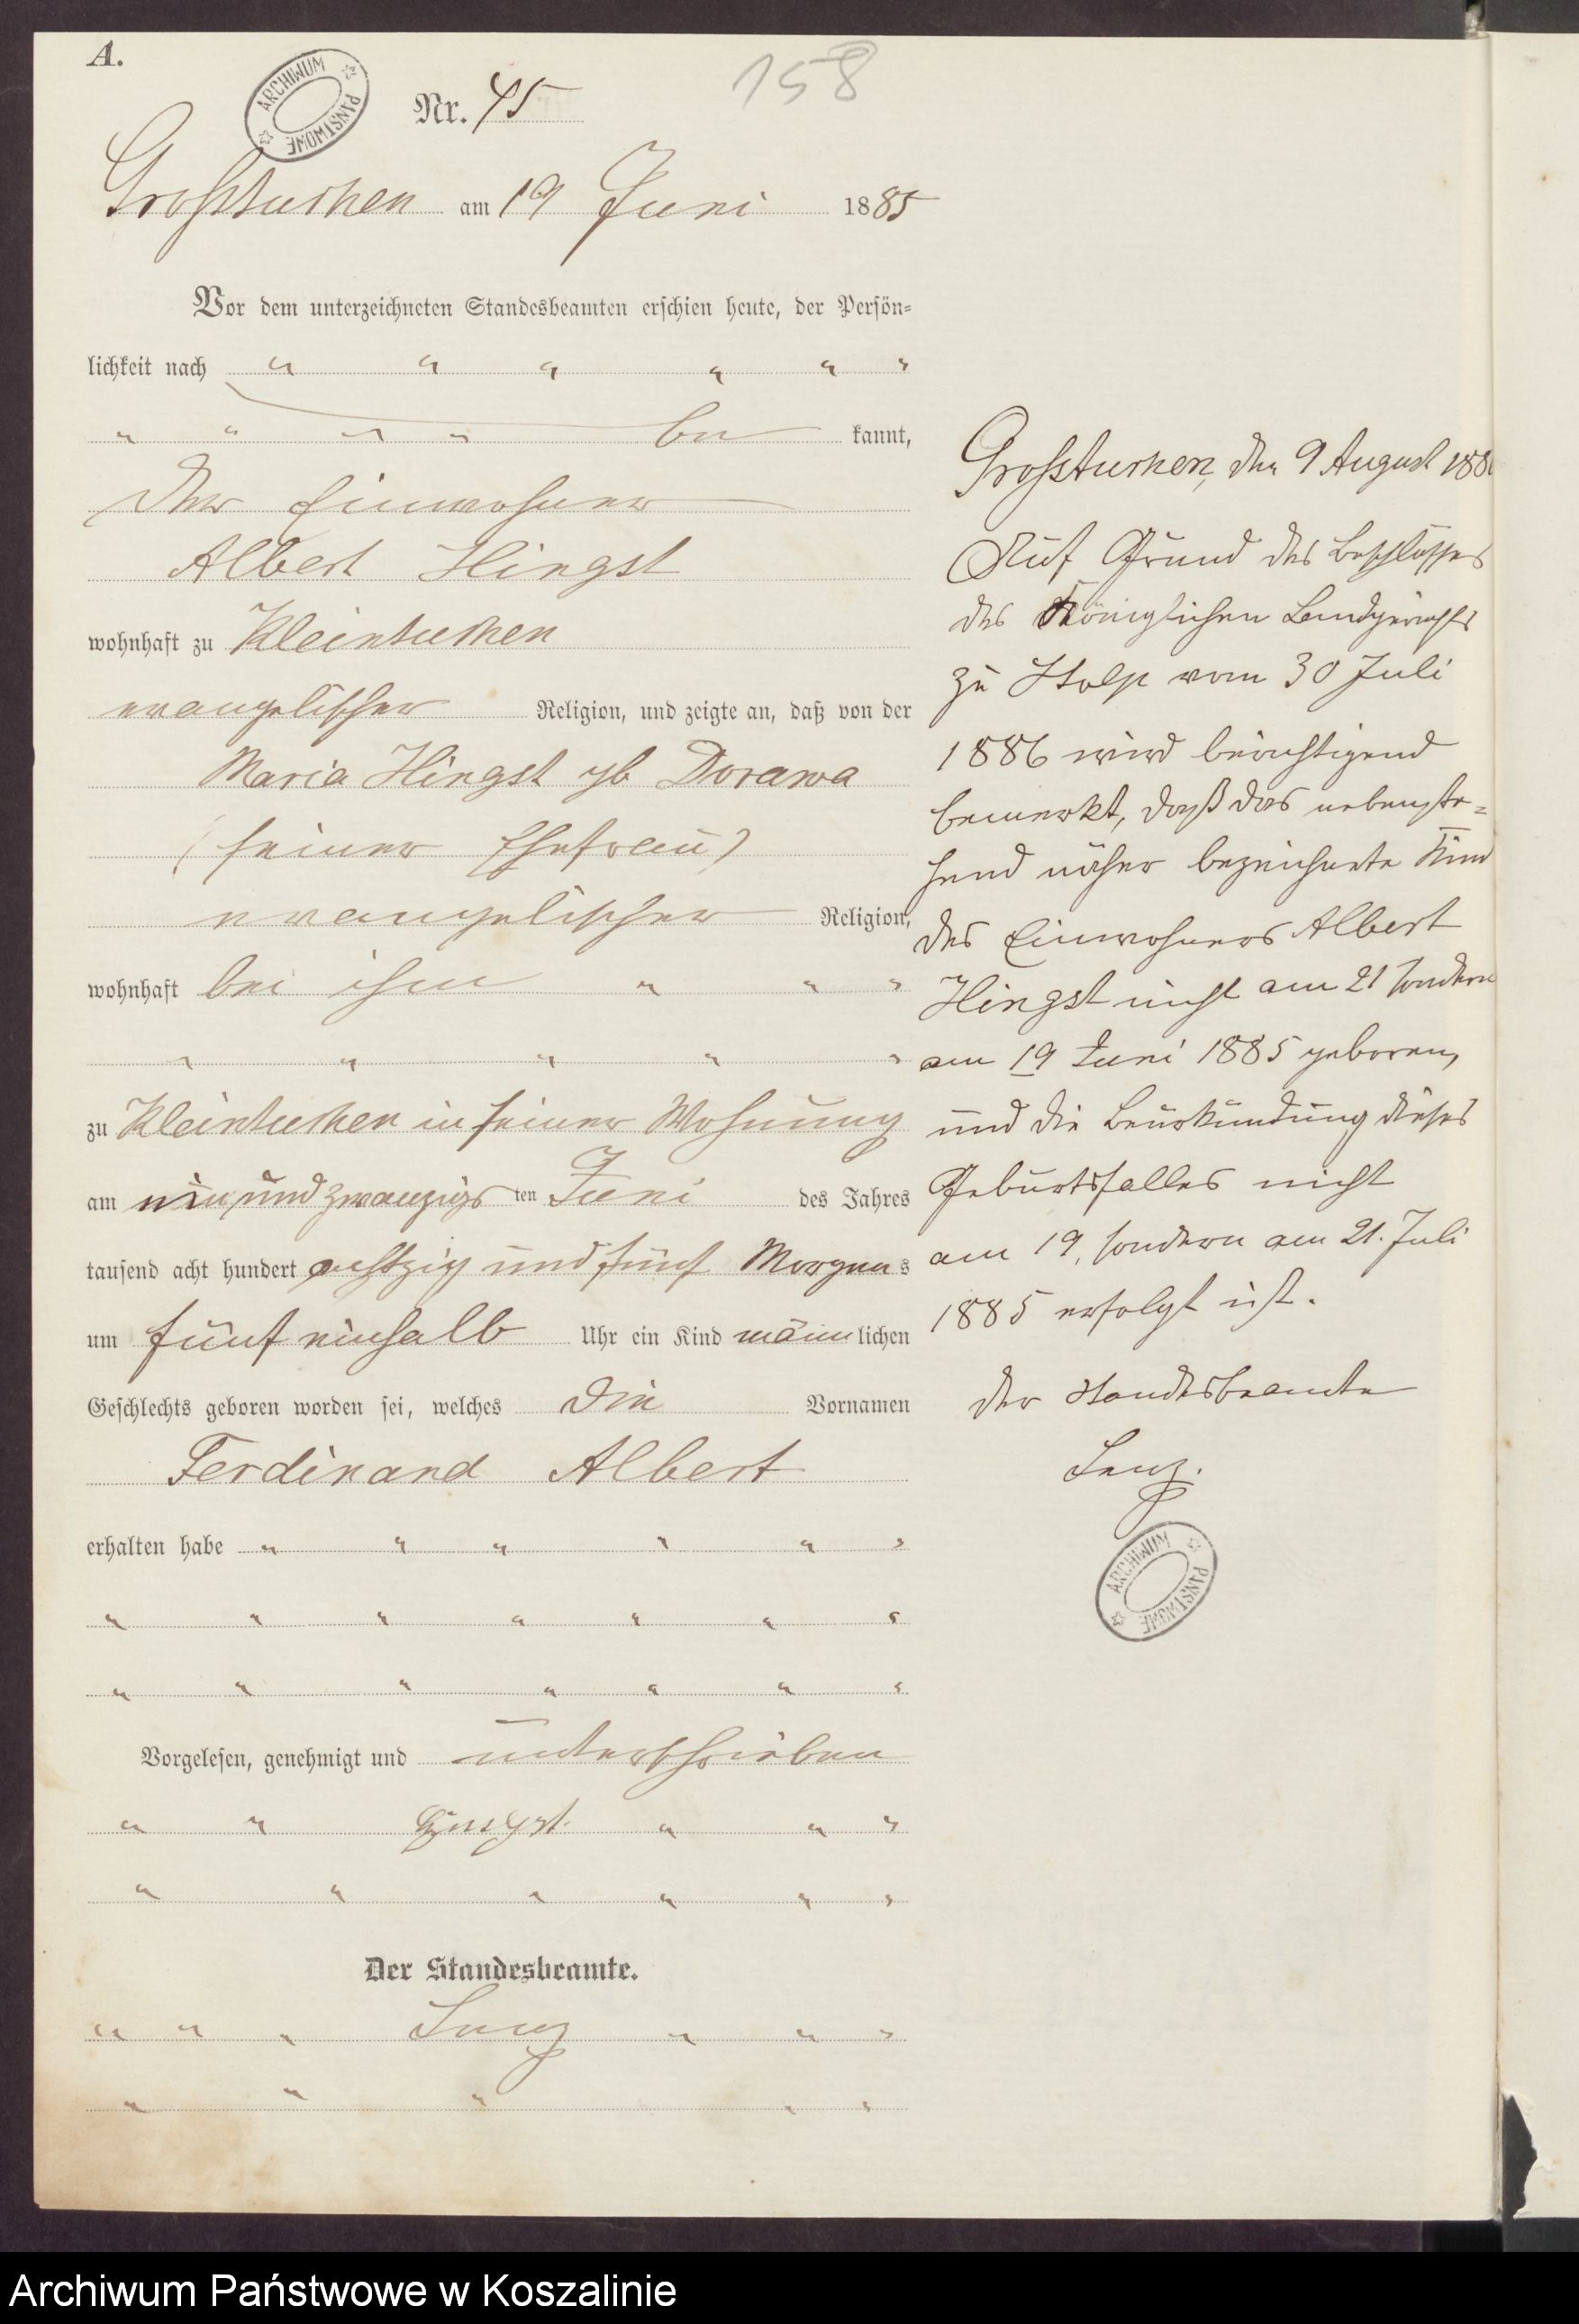 A.
ARCHIWUM PAŃSTWOWE
Nr. 45
158
Großtuchen am 19 Juni 1885
Vor dem unterzeichneten Standesbeamten erschien heute, der Persön=
lichkeit nach " " " " " "
" " " " be kannt,
der Einwohner
Albert Hingst
wohnhaft zu Kleintuchen
evangelischer Religion, und zeigte an, daß von der
Maria Hingst gb Dorawa
(seiner Ehefrau)
evangelischer Religion,
wohnhaft bei ihm " " "
" " " " "
zu Kleintuchen in seiner Wohnung
am ein und zwanzigs ten Juni des Jahres
tausend acht hundert achtzig und fünf Morgens
um fünf einhalb Uhr ein Kind männlichen
Geschlechts geboren worden sei, welches die Vornamen
Ferdinand Albert
erhalten habe " " " " " "
" " " " " " "
" " " " " " "
Vorgelesen, genehmigt und unterschrieben
" " Hingst. " " "
" " " " " "
Der Standesbeamte.
" " " Lenz " " "
" " " " "
Großtuchen, den 9 August 188
Auf Grund des Beschlusses
des Königlichen Landgerichts
zu Stolp vom 30 Juli
1886 wird berichtigend
bemerkt, daß das nebenste=
hend näher bezeichnete Kind
des Einwohners Albert
Hingst nicht am 21 sondern
am 19 Juni 1885 geboren,
und die Beurkundung dieses
Geburtsfalles nicht
am 19, sondern am 21. Juli
1885 erfolgt ist.
Der Standesbeamte
Lenz.
ARCHIWUM PAŃSTWOWE
Archiwum Państwowe w Koszalinie